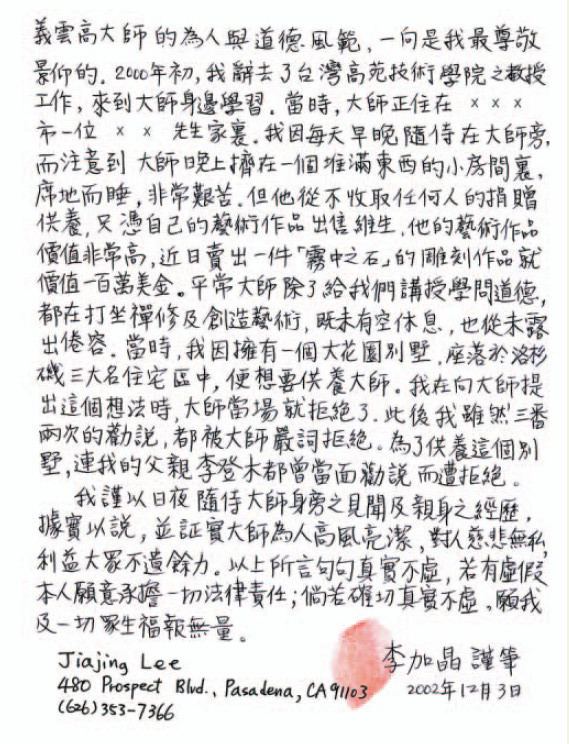 義雲高大師的為人與道德風範，一向是我最尊敬
景仰的．2000年初，我辭去了台灣高苑技術學院之教授
工作，來到大師身邊學習．當時，大師正住在 x x x
市一位 x x 先生家裏．我因每天早晚隨侍在大師旁，
而注意到 大師晚上擠在一個堆滿東西的小房間裏，
席地而睡，非常艱苦．但他從不收取任何人的捐贈
供養，只憑自己的藝術作品出售維生．他的藝術作品
價值非常高，近日賣出一件「霧中之石」的雕刻作品就
價值一百萬美金。平常大師除了給我們講授學問道德，
都在打坐禪修及創造藝術，既未有空休息，也從未露
出倦容．當時，我因擁有一個大花園別墅，座落於洛杉
磯三大名住宅區中，便想要供養大師。我在向大師提
出這個想法時，大師當場就拒絕了．此後我雖然三番
兩次的勸說，都被大師嚴詞拒絕。為了供養這個別
墅，連我的父親李登木都曾當面勸說而遭拒絕。
我謹以日夜隨侍大師身旁之見聞及親身之經歷，
據實以說，並証實大師為人高風亮潔，對人慈悲無私，
利益大眾不遺餘力。以上所言句句真實不虛，若有虛假
本人願意承擔一切法律責任；倘若確切真實不虛，願我
及一切眾生福報無量。
Jiajing Lee
480 Prospect Blvd., Pasadena, CA 91103
(626)353-7366
李加晶 謹筆
2002年12月3日